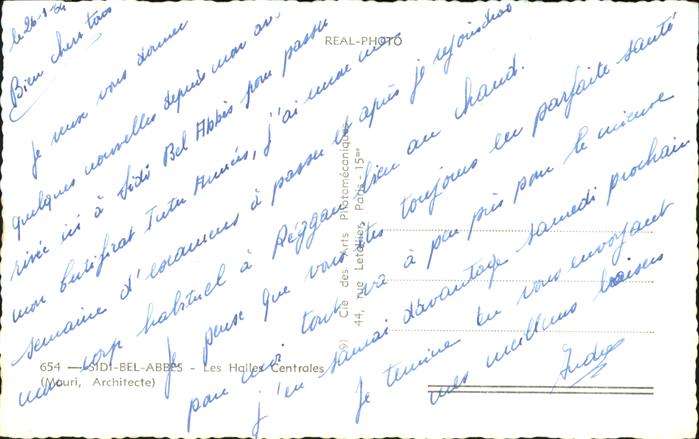 le 26-1-54
Bien chers tous
Je viens vous donner
quelques nouvelles depuis mon ar-
rivée ici à Sidi Bel Abbès pour passer
mon Certificat Inter Armées, j'ai une
semaine d'examens à passer et après je rejoindrai
mon corp habituel à Réggan bien au chaud.
Je pense que vous êtes toujours en parfaite santé
pour moi tout va à peu près pour le mieux
j'en saurai d'avantage samedi prochain
Je termine en vous envoyant
mes meilleurs baisers
REAL-PHOTO
Cie des Arts Photomécaniques
44, rue Letellier, Paris - 15me
654 — SIDI-BEL-ABBÈS - Les Halles Centrales
(Mouri, Architecte)